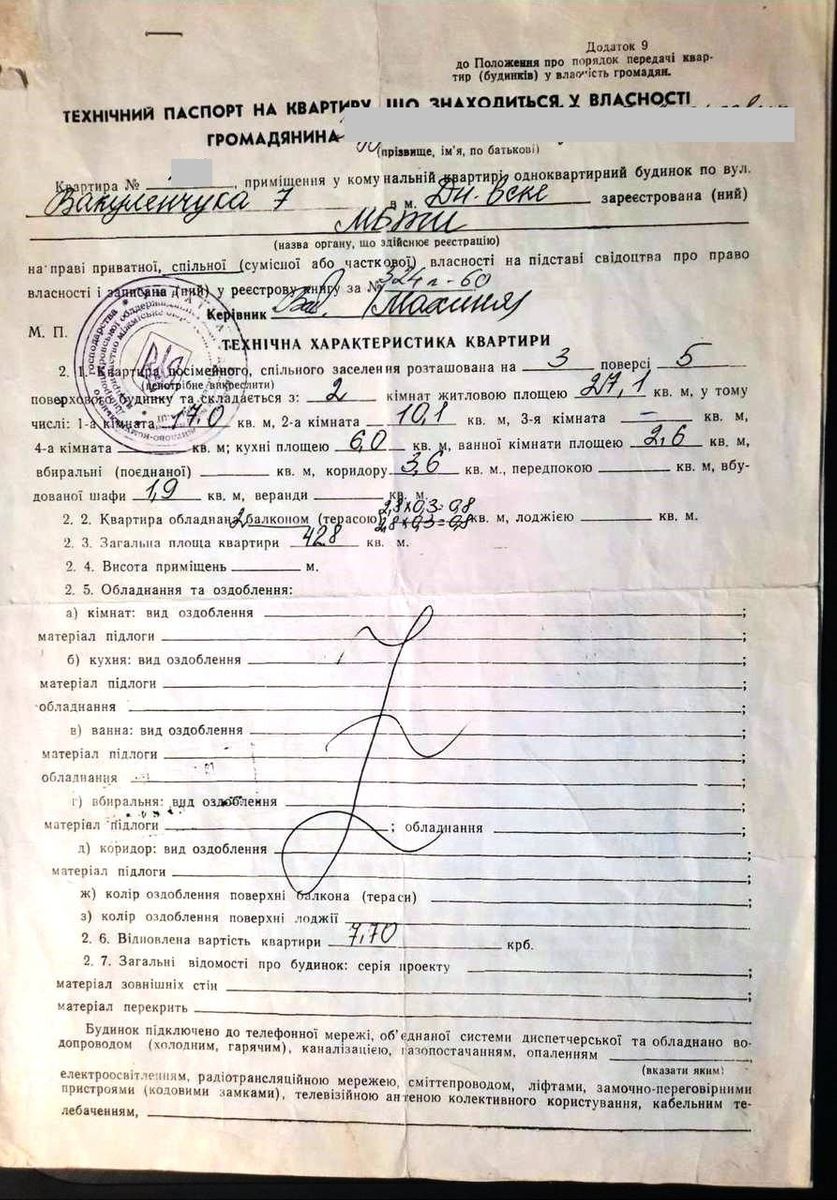 Додаток 9
до Положення про порядок передачі квар-
тир (будинків) у власність громадян.
ТЕХНІЧНИЙ ПАСПОРТ НА КВАРТИРУ, ЩО ЗНАХОДИТЬСЯ У ВЛАСНОСТІ
ГРОМАДЯНИНА
(прізвище, ім'я, по батькові)
Квартира № , приміщення у комунальній квартирі, одноквартирний будинок по вул.
Вакуленчука 7 в м. Дн-вске зареєстрована (ний)
МБТИ
(назва органу, що здійснює реєстрацію)
на праві приватної, спільної (сумісної або часткової) власності на підставі свідоцтва про право
власності і записана (ний) у реєстрову книгу за № 324 п-60
Керівник Махиня
М. П.
ТЕХНІЧНА ХАРАКТЕРИСТИКА КВАРТИРИ
2. 1. Квартира посімейного, спільного заселення розташована на 3 поверсі 5
(непотрібне викреслити)
поверхового будинку та складається з: 2 кімнат житловою площею 27,1 кв. м, у тому
числі: 1-а кімната 17,0 кв. м, 2-а кімната 10,1 кв. м, 3-я кімната — кв. м,
4-а кімната кв. м; кухні площею 6,0 кв. м, ванної кімнати площею 2,6 кв. м,
вбиральні (поєднаної) кв. м, коридору 3,6 кв. м., передпокою кв. м, вбу-
дованої шафи 1,9 кв. м, веранди кв. м.
2. 2. Квартира обладнана 2 балконом (терасою) 2,8х0,3=0,8 2,8х0,3=0,8 кв. м, лоджією кв. м.
2. 3. Загальна площа квартири 42,8 кв. м.
2. 4. Висота приміщень м.
2. 5. Обладнання та оздоблення:
а) кімнат: вид оздоблення ;
матеріал підлоги ;
б) кухня: вид оздоблення ;
матеріал підлоги ;
обладнання ;
в) ванна: вид оздоблення ;
матеріал підлоги ;
обладнання ;
г) вбиральня: вид оздоблення ;
матеріал підлоги ; обладнання ;
д) коридор: вид оздоблення ;
матеріал підлоги ;
ж) колір оздоблення поверхні балкона (тераси) ;
з) колір оздоблення поверхні лоджії
2. 6. Відновлена вартість квартири 7,70 крб.
2. 7. Загальні відомості про будинок: серія проекту ;
матеріал зовнішніх стін ;
матеріал перекрить ;
Будинок підключено до телефонної мережі, об'єднаної системи диспетчерської та обладнано во-
допроводом (холодним, гарячим), каналізацією, газопостачанням, опаленням ,
(вказати яким)
електроосвітленням, радіотрансляційною мережею, сміттєпроводом, ліфтами, замочно-переговірними
пристроями (кодовими замками), телевізійною антеною колективного користування, кабельним те-
лебаченням,